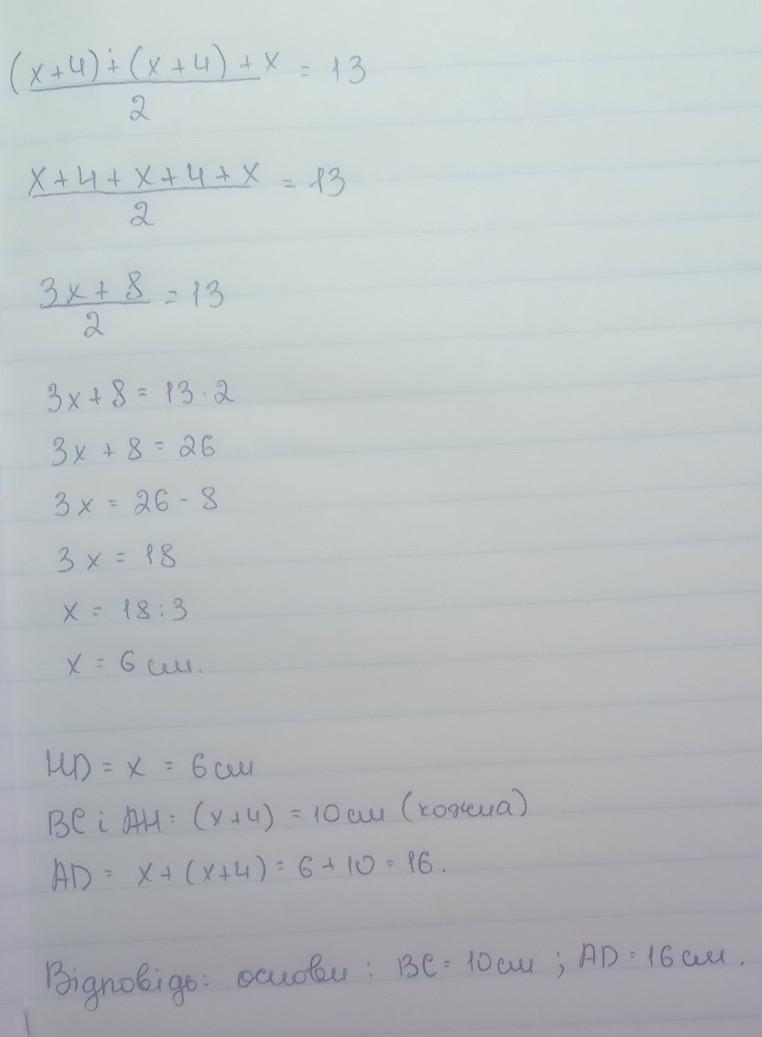 (x+4)+(x+4)+x = 13
2
x+4+x+4+x = 13
2
3x+8 = 13
2
3x+8 = 13·2
3x+8 = 26
3x = 26-8
3x = 18
x = 18:3
x = 6 см.
HD = x = 6 см
BC і AH = (x+4) = 10 см (кожна)
AD = x+(x+4) = 6+10 = 16.
Відповідь: основи: BC = 10 см; AD = 16 см.